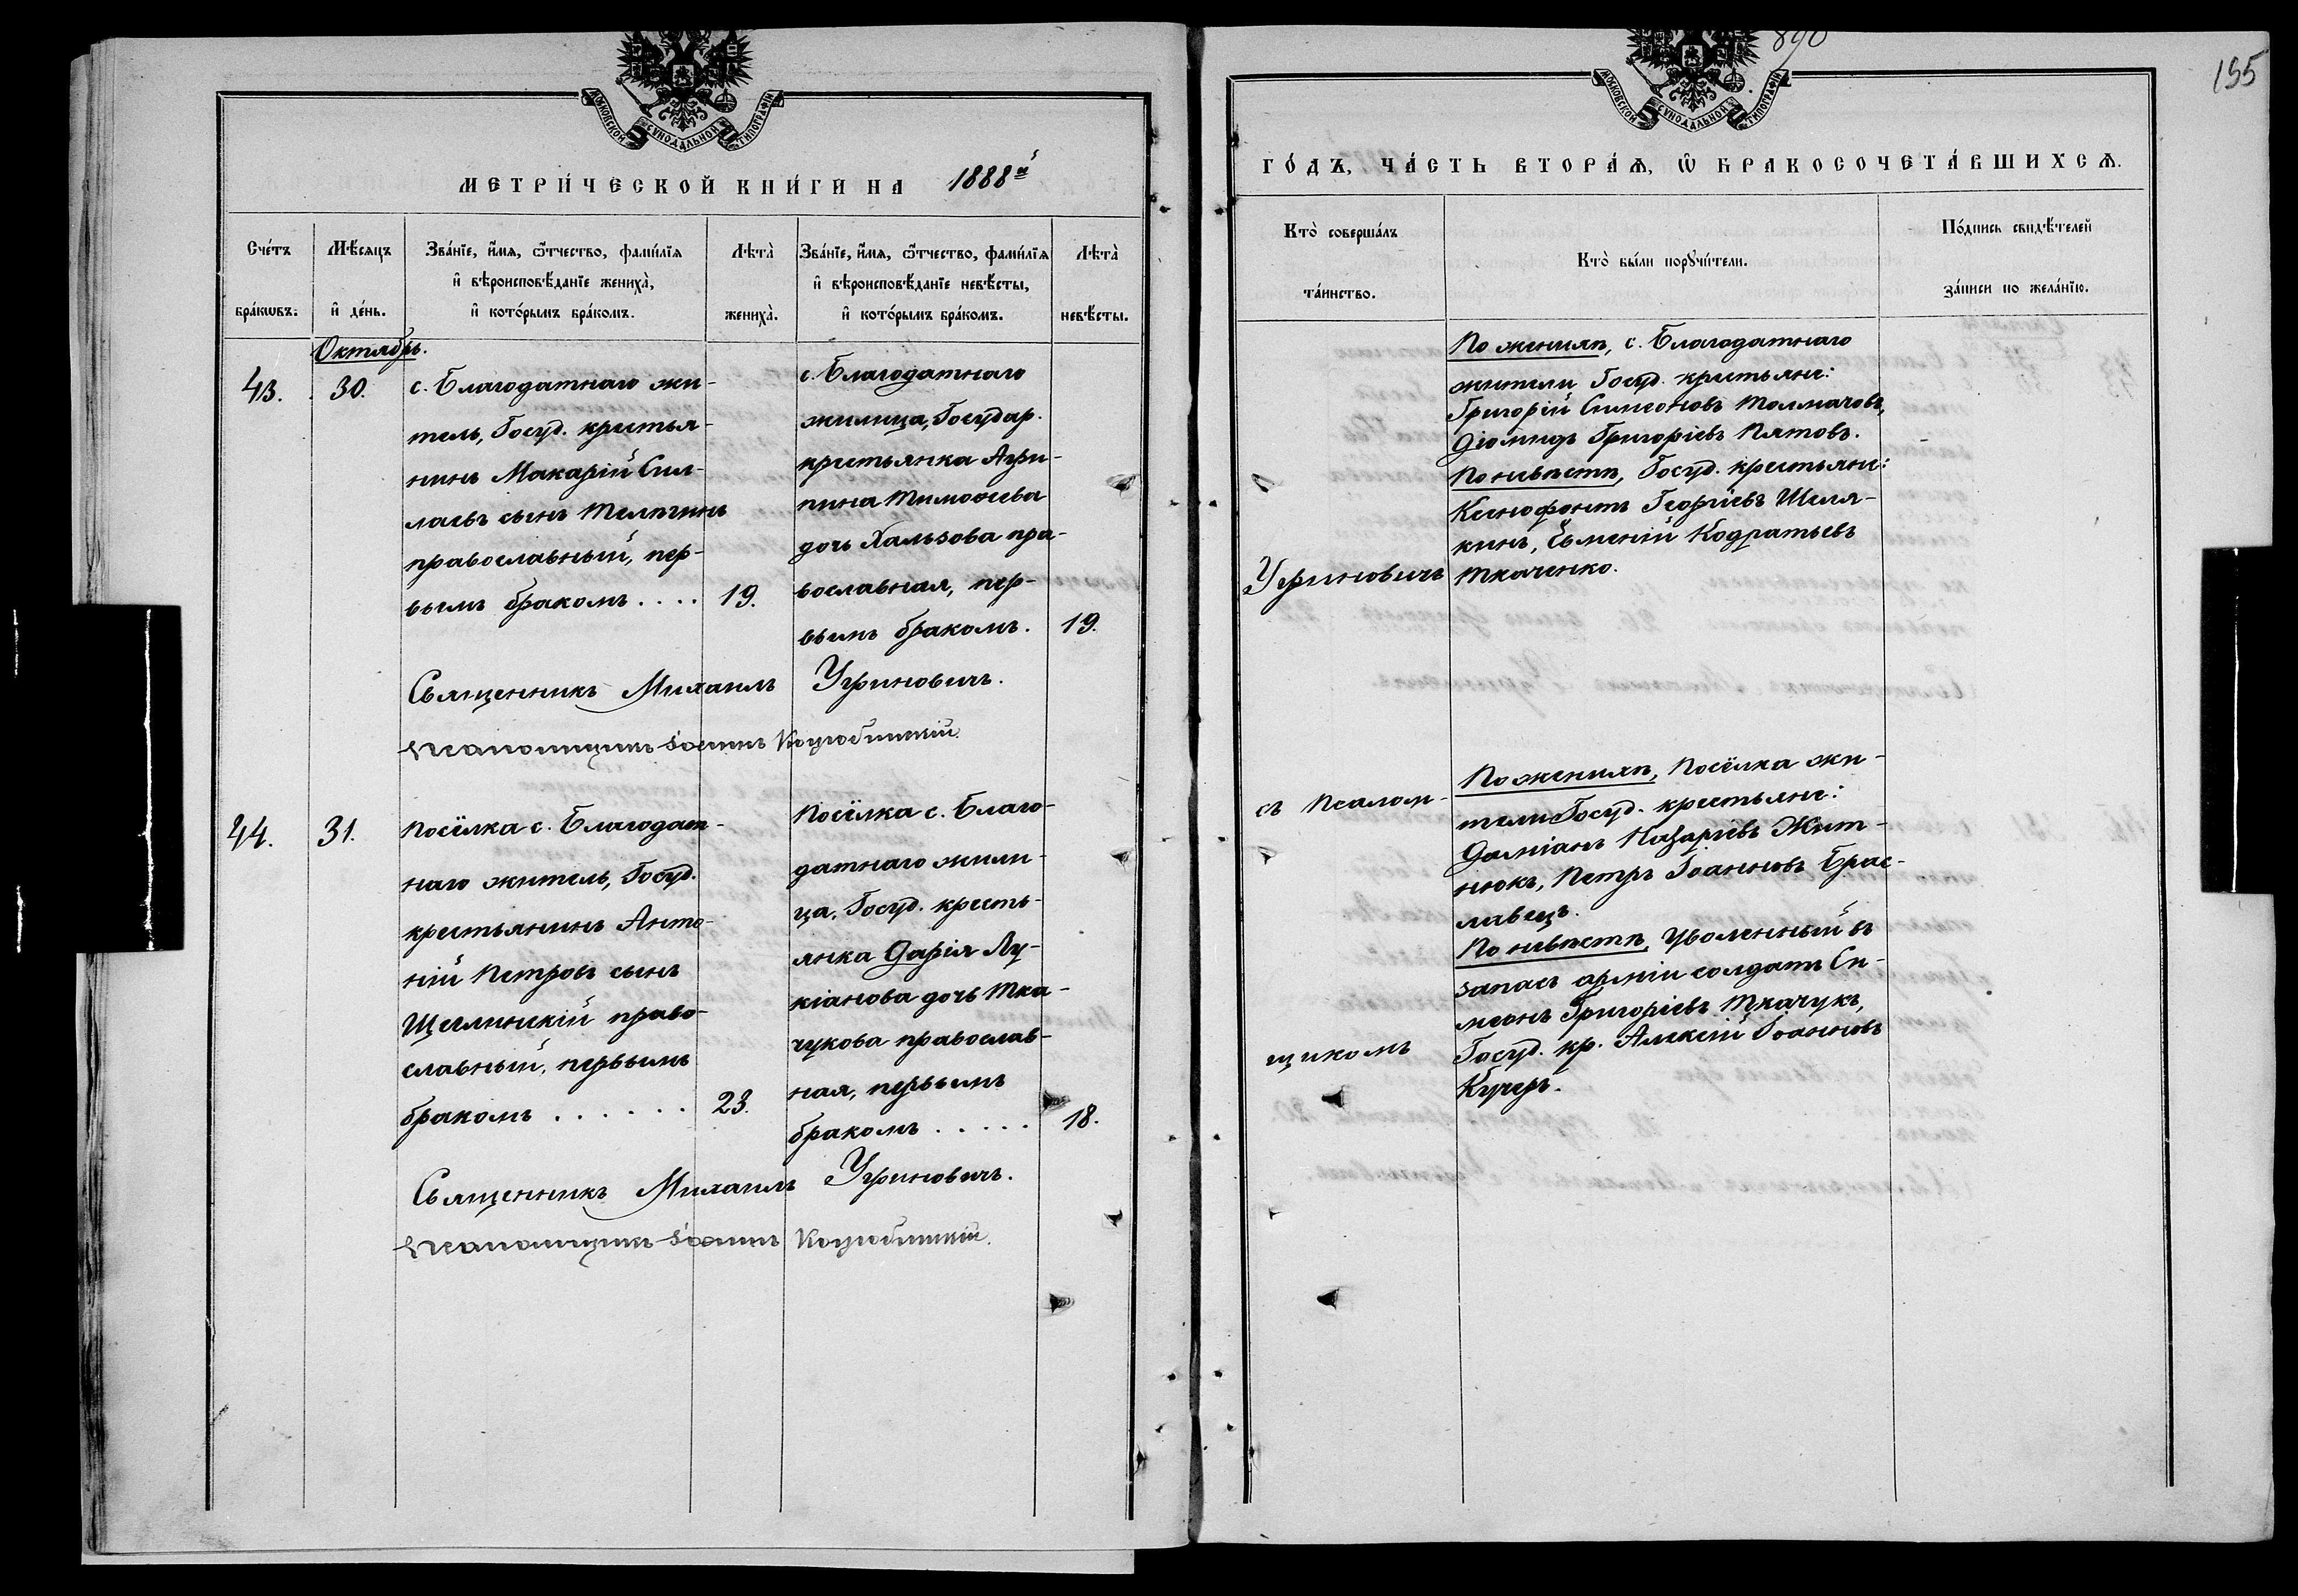 890
155
МОСКОВСКОЙ СѴНОДАЛЬНОЙ ТИПОГРАФІИ
МЕТРИ́ЧЕСКОЙ КНИ́ГИ НА 1888й
Сче́тъ бра́кѡвъ.
Мѣ́сяцъ и҆ де́нь.
Зва́нїе, и҆́мя, ѻ҆́тчество, фами́лїя
и҆ вѣроисповѣ́данїе жениха̀,
и҆ кото́рымъ бра́комъ.
Лѣта̀ жениха̀.
Зва́нїе, и҆́мя, ѻ҆́тчество, фами́лїя
и҆ вѣроисповѣ́данїе невѣ́сты,
и҆ кото́рымъ бра́комъ.
Лѣта̀ невѣ́сты.
Октябрь.
43.
30.
с. Благодатнаго жи-
тель, Госуд. крестья-
нинъ Макарій Сил-
лаевъ сынъ Телѣгинъ
православный, пер-
вымъ бракомъ .... 19.
с. Благодатнаго
жилица, Государ.
крестьянка Агри-
пина Тимоѳеева
дочь Хальзова пра-
вославная, пер-
вымъ бракомъ. 19.
Священникъ Михаилъ Угриновичъ.
Псаломщикъ Іоаннъ
44.
31.
Посёлка с. Благодат-
наго житель, Госуд.
крестьянинъ Анто-
ній Петровъ сынъ
Щеглинскій право-
славный, первымъ
бракомъ ...... 23.
Посёлка с. Благо-
датнаго жили-
ца, Госуд. кресть-
янка Дарія Лу-
кіанова дочь Тка-
чукова православ-
ная, первымъ
бракомъ ..... 18.
Священникъ Михаилъ Угриновичъ.
Псаломщикъ Іоаннъ
МОСКОВСКОЙ СѴНОДАЛЬНОЙ ТИПОГРАФІИ
ГО́ДЪ, ЧА́СТЬ ВТОРА́Ѧ, Ѡ҆ БРАКОСОЧЕТА́ВШИХСѦ.
Кто̀ соверша́лъ
та́инство.
Кто̀ бы́ли порꙋчи́тели.
По́дпись свидѣ́телей
за́писи по жела́нїю.
По женихѣ, с. Благодатнаго
жители Госуд. крестьяне:
Григорій Симеоновъ Толмачовъ,
Діомидъ Григоріевъ Пятовъ.
По невѣстѣ, Госуд. крестьяне:
Ксенофонтъ Георгіевъ Шеля-
кинъ, Евменій Кодратьевъ
Угриновичъ
Ткаченко.
По женихѣ, Посёлка жи-
съ Псалом-
тели Госуд. крестьяне:
Даміанъ Назаріевъ Жит-
нюкъ, Петръ Іоанновъ Брас-
лавецъ.
По невѣстѣ, Уволенный въ
запасъ арміи солдатъ Си-
меонъ Григоріевъ Ткачукъ,
щикомъ
Госуд. кр. Алексій Іоанновъ
Кучеръ.